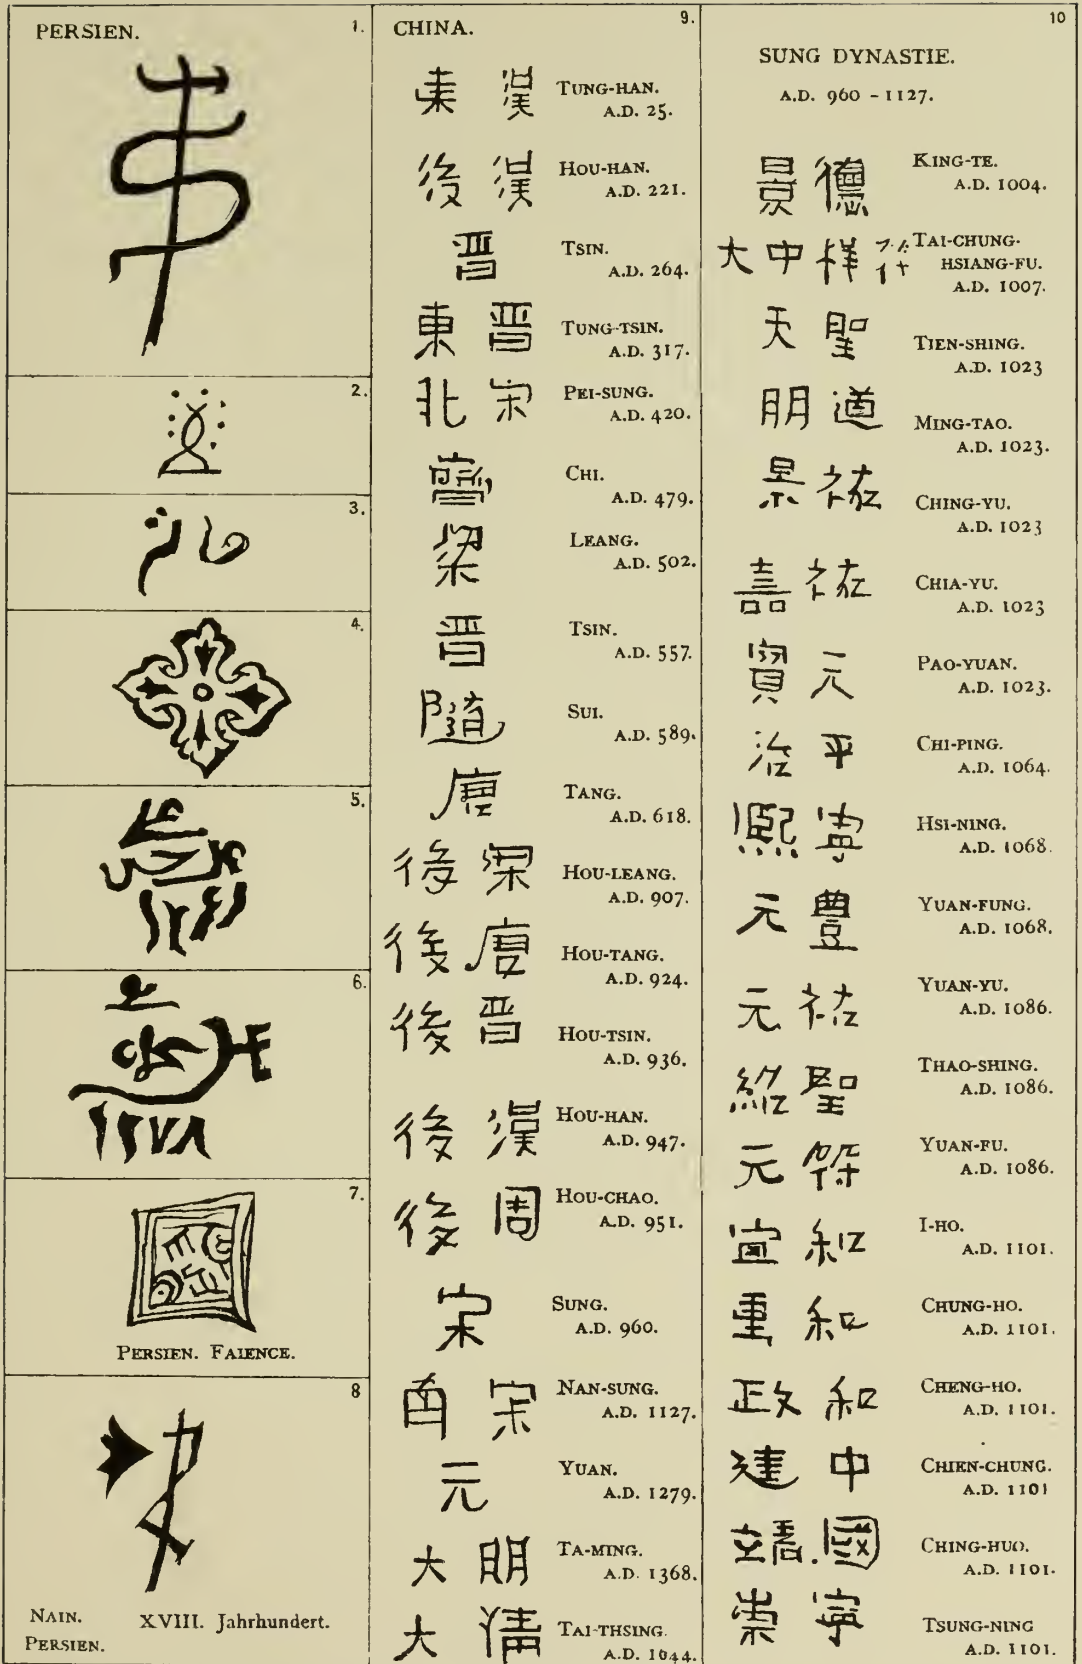 PERSIEN. 1.
2.
3.
4.
5.
6.
7.
PERSIEN. FAIENCE.
8
NAIN. XVIII. Jahrhundert.
PERSIEN.
CHINA. 9.
東 漢 TUNG-HAN.
A.D. 25.
後 漢 HOU-HAN.
A.D. 221.
晋 TSIN.
A.D. 264.
東 晋 TUNG-TSIN.
A.D. 317.
北 宋 PEI-SUNG.
A.D. 420.
齊 CHI.
A.D. 479.
梁 LEANG.
A.D. 502.
晋 TSIN.
A.D. 557.
隨 SUI.
A.D. 589.
唐 TANG.
A.D. 618.
後 梁 HOU-LEANG.
A.D. 907.
後 唐 HOU-TANG.
A.D. 924.
後 晋 HOU-TSIN.
A.D. 936.
後 漢 HOU-HAN.
A.D. 947.
後 周 HOU-CHAO.
A.D. 951.
宋 SUNG.
A.D. 960.
南 宋 NAN-SUNG.
A.D. 1127.
元 YUAN.
A.D. 1279.
大 明 TA-MING.
A.D. 1368.
大 清 TAI-THSING.
A.D. 1644.
10
SUNG DYNASTIE.
A.D. 960 - 1127.
景 德 KING-TE.
A.D. 1004.
大 中 祥 符 TAI-CHUNG-
HSIANG-FU.
A.D. 1007.
天 聖 TIEN-SHING.
A.D. 1023
明 道 MING-TAO.
A.D. 1023.
景 祐 CHING-YU.
A.D. 1023
嘉 祐 CHIA-YU.
A.D. 1023
寶 元 PAO-YUAN.
A.D. 1023.
治 平 CHI-PING.
A.D. 1064.
熙 寧 HSI-NING.
A.D. 1068.
元 豐 YUAN-FUNG.
A.D. 1068.
元 祐 YUAN-YU.
A.D. 1086.
紹 聖 THAO-SHING.
A.D. 1086.
元 符 YUAN-FU.
A.D. 1086.
宣 和 I-HO.
A.D. 1101.
重 和 CHUNG-HO.
A.D. 1101.
政 和 CHENG-HO.
A.D. 1101.
建 中 CHIEN-CHUNG.
A.D. 1101
靖 國 CHING-HUO.
A.D. 1101.
崇 寧 TSUNG-NING
A.D. 1101.